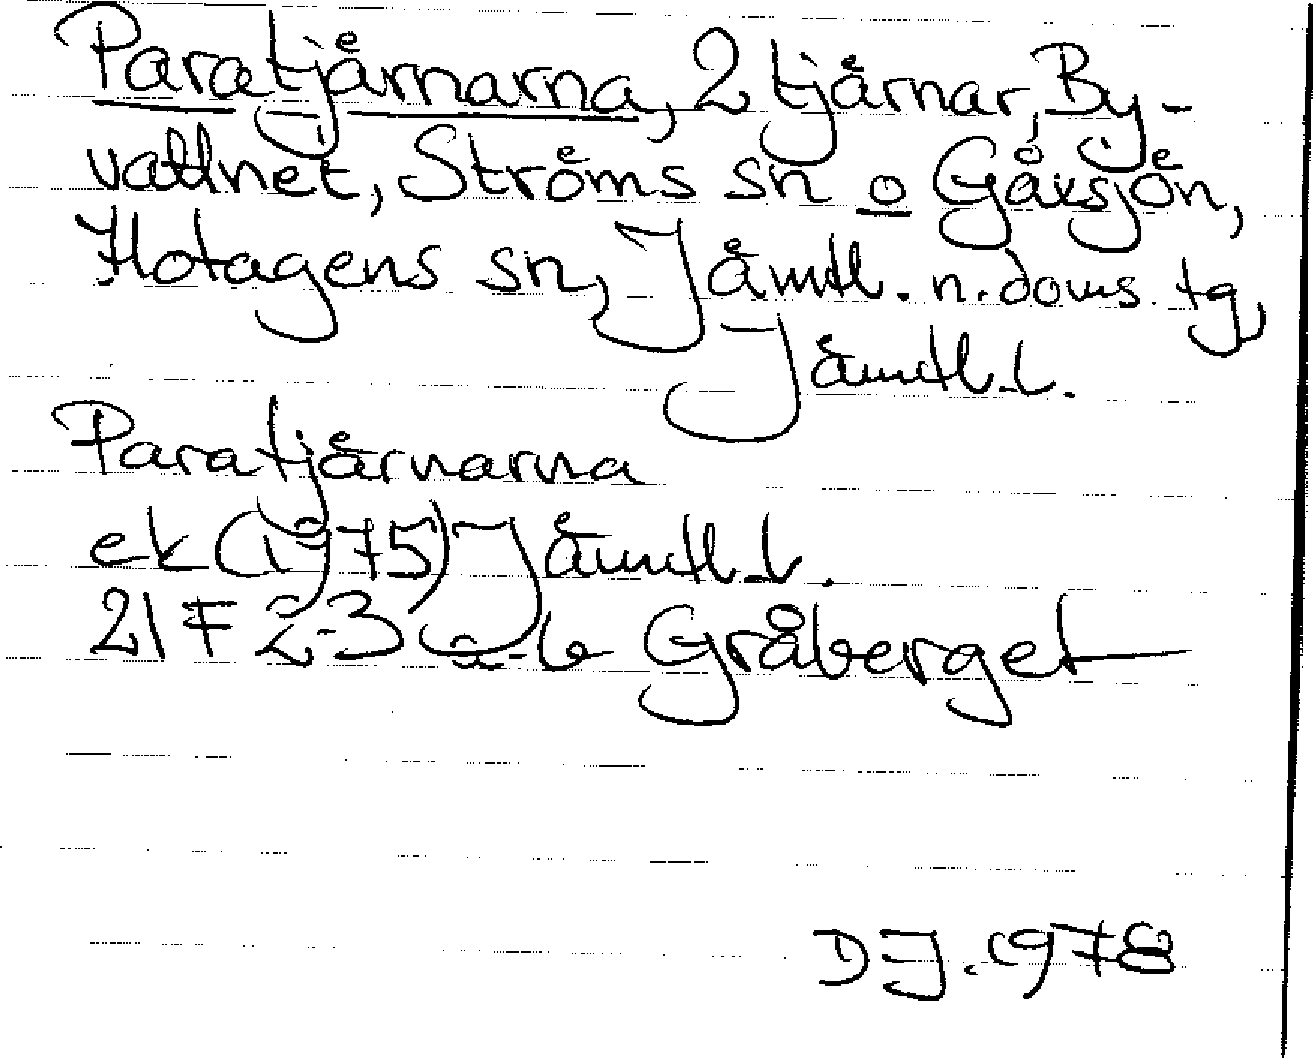 Paratjärnarna, 2 tjärnar, By-
vattnet, Ströms sn o Gåxsjön,
Hotagens sn, Jämtl. n. doms. tg,
Jämtl. l.
Paratjärnarna
ek (1975) Jämtl. l.
21 F 2-3 a-b Gråberget
DJ. 1978